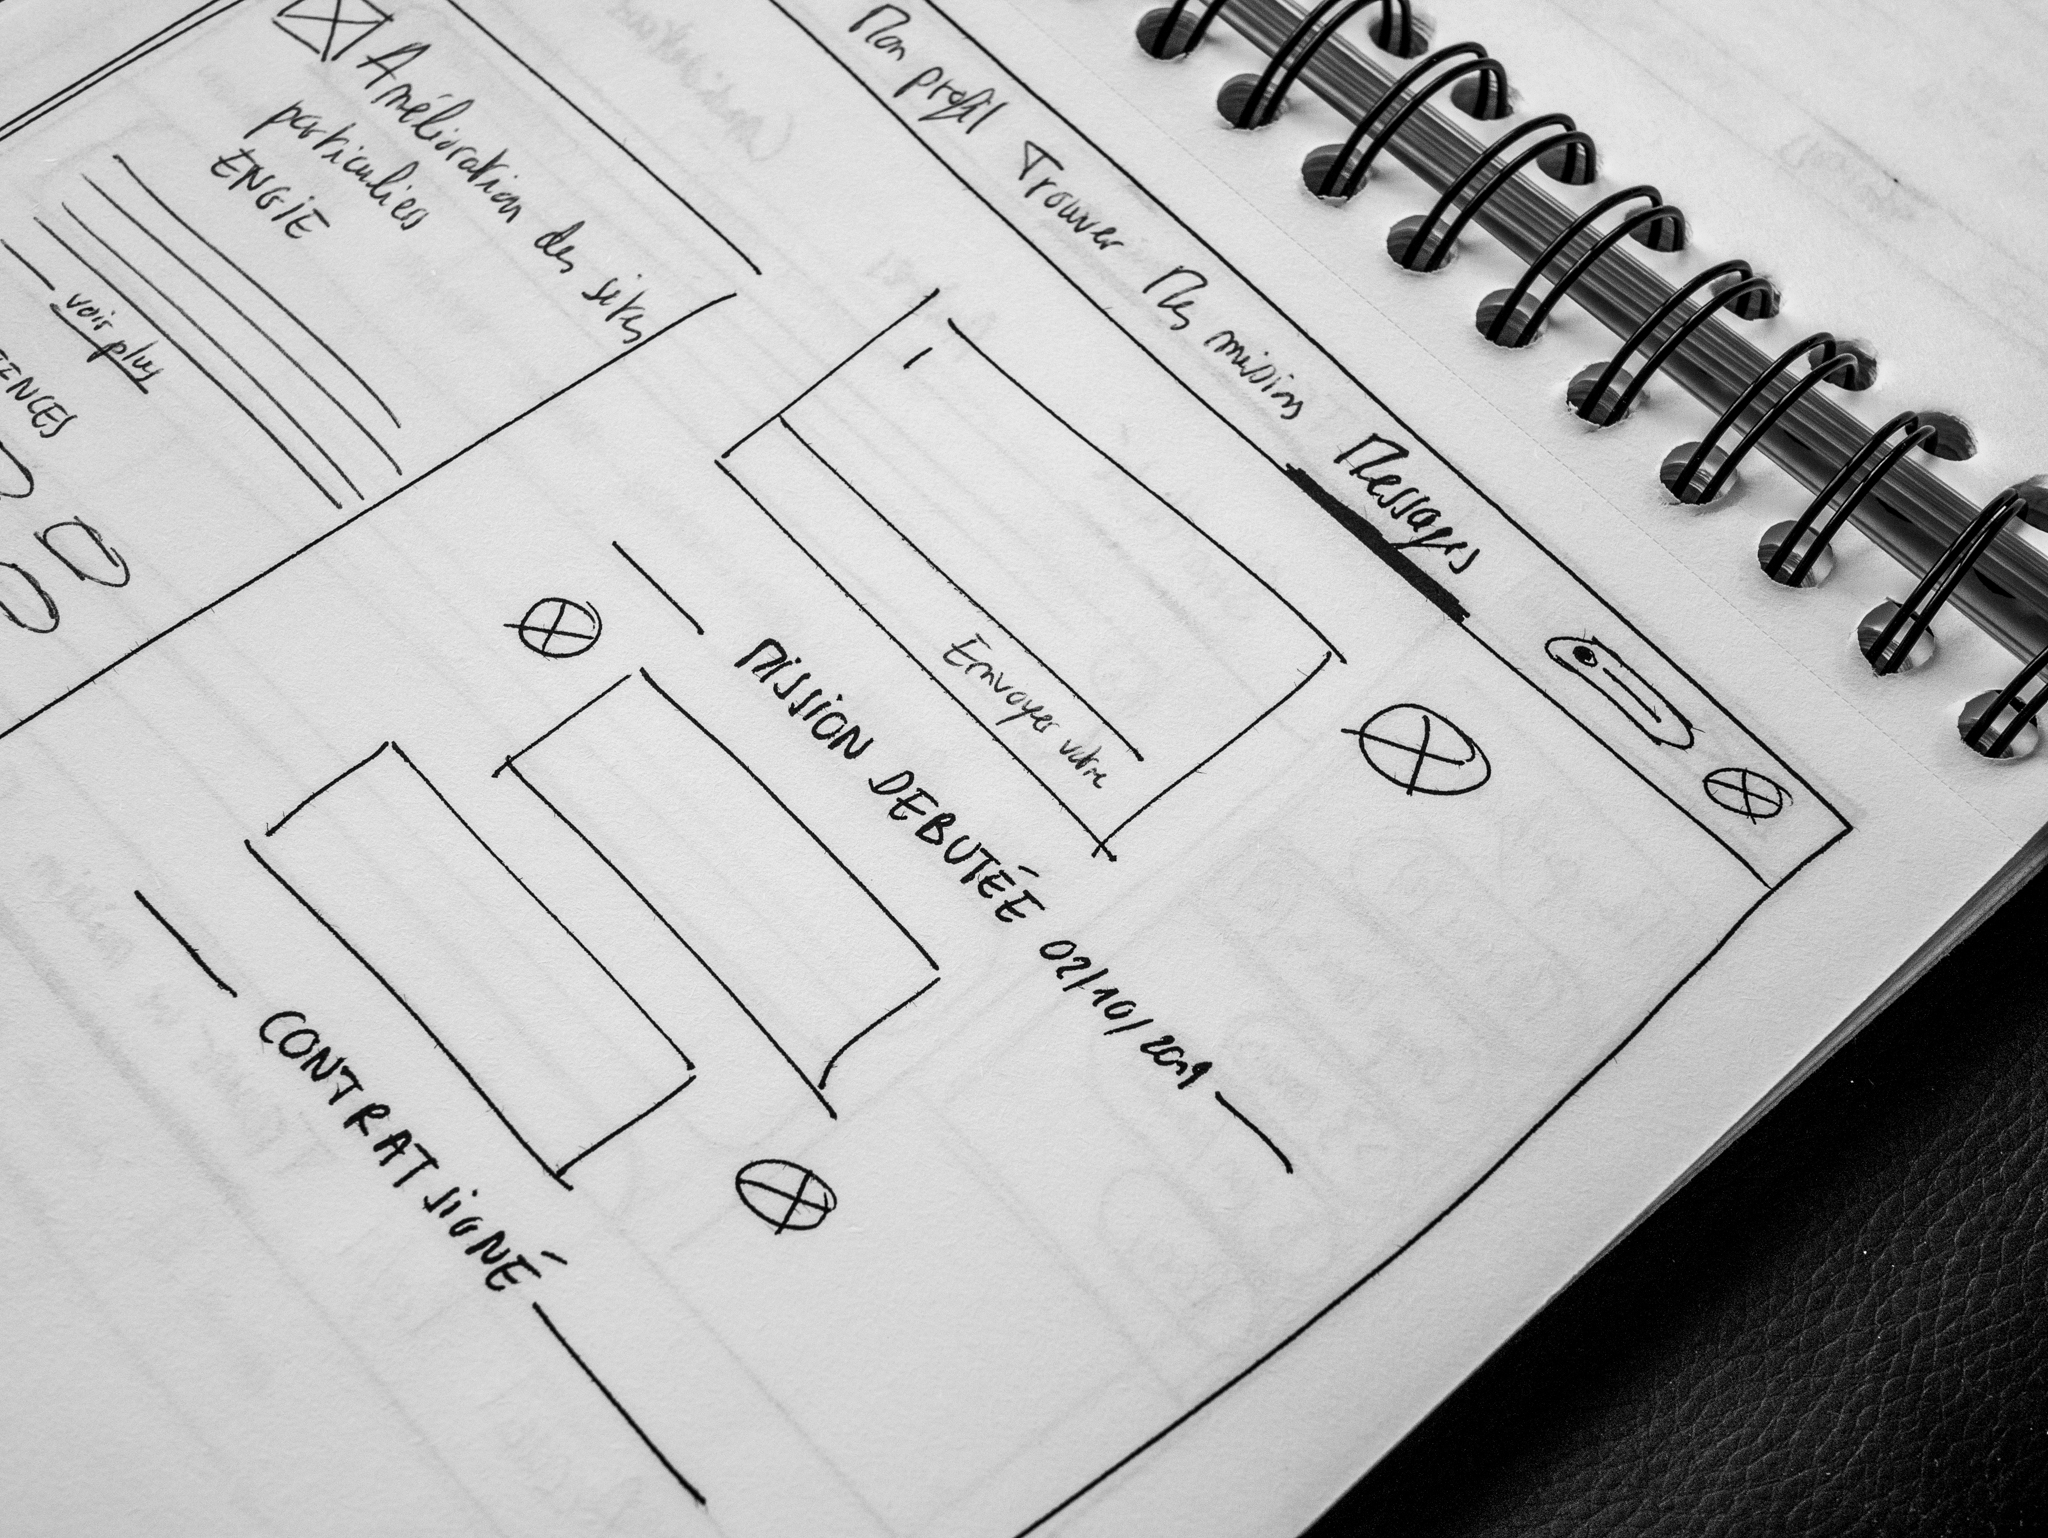 Mon profil Trouver Mes missions Messages
Amélioration des sites
particuliers
ENGIE
voir plus
Envoyer votre
MISSION DEBUTÉE 02/10/2019
CONTRAT SIGNÉ